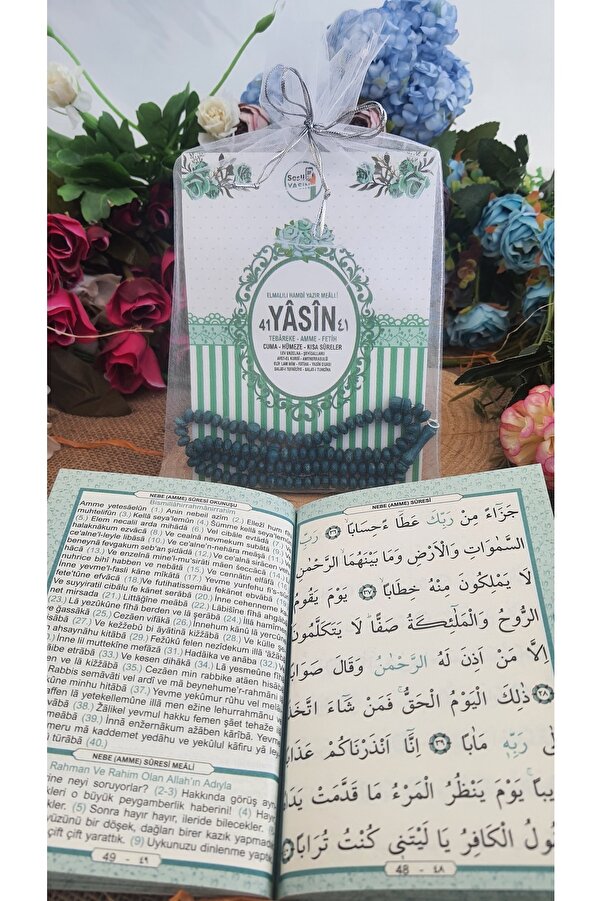 Sesli
YASİN
ELMALILI HAMDİ YAZIR MEÂLİ
41 YÂSÎN ٤١
TEBÂREKE - AMME - FETİH
CUMA - HÜMEZE - KISA SÛRELER
NEBE (AMME) SÛRESİ OKUNUŞU
Bismillâhirrahmânirrahîm
Amme yetesâelûn (1.) Anin nebeil azîm (2.) Ellezî hum fîhi
muhtelifûn (3.) Kellâ seya'lemûn (4.) Sümme kellâ seya'lemûn
(5.) Elem necalil arda mihâdâ (6.) Vel cibâle evtâdâ (7.) Ve
halaknâkum ezvâcâ (8.) Ve cealnâ nevmekum subâtâ (9.) Ve
ce'alne'l-leyle libâsâ (10.) Ve ce'alne'n-nehâra meâşâ (11.)
beneynâ fevgakum seb'an şidâdâ (12.) Ve ce'alnâ sirâcen
(13.) Ve enzelnâ mine'l-mu'sirâti mâen seccâcâ (14.)
nuhrice bihî habben ve nebâtâ (15.) Ve cennâtin elfâfâ
Inne yevme'l-fasli kâne mîkâtâ (17.) Yevme yunfehu fi's-
fete'tûne efvâcâ (18.) Ve futihatissemâu fekânet ebvâbâ
Ve suyyiratil cibâlu fe kânet serâbâ (20.) İnne cehenneme
net mirsada (21.) Littâğîne meâbâ (22.) Lâbisîne fîhâ ahgâ
(23.) Lâ yezûkûne fîhâ berden ve lâ şerâbâ (24.) İllâ hamîme
ve ğassâkâ (25.) Cezâen vifâkâ (26.) İnnehum kânû lâ yercûne
(27.) Ve kezzebû bi âyâtinâ kizzâbâ (28.) Ve külle şe
ahsaynâhu kitâbâ (29.) Fezûkû felen nezîdekum illâ 'azâbâ
İnne lil muttekîne mefâzâ (31.) Hadâika ve anâba (32.)
âibe etrâbâ (33.) Ve kesen dihâkâ (34.) Lâ yesmeûne fîhâ
kizzâbâ (35.) Cezâen min rabbike atâen hisâbâ
Rabbis semâvâti vel ardi ve mâ beynehume'r-rahmâni
kûne minhu hitâbâ (37.) Yevme yekûmur rûhu vel melâ
affen lâ yetekellemûne illâ men ezine lehurrahmânu
âbâ (38.) Zâlikel yevmul hakku femen şâet tehaze
meâbâ (39.) İnnâ enzernâkum azâben karîbâ. Yevme
meru mâ kaddemet yedâhu ve yekûlul kâfiru yâ ley
türâbâ (40.)
NEBE (AMME) SÛRESİ MEÂLİ
Rahman Ve Rahim Olan Allah'ın Adıyla
irine neyi soruyorlar? (2-3) Hakkında görüş
kleri o büyük peygamberlik haberini! (4) Hayır
kler. (5) Sonra hayır hayır, ileride bilecekler. (6)
yüzünü bir döşek, dağları birer kazık yapmadık
çift çift yarattık. (9) Uykunuzu dinlenme yaptık
49 - ٤٩
NEBE (AMME) SÛRESİ
جَزَٓاءً مِنْ رَبِّكَ عَطَٓاءً حِسَابًا ﴿٣٦﴾ رَبِّ
السَّمٰوَاتِ وَالْاَرْضِ وَمَا بَيْنَهُمَا الرَّحْمٰنِ
لَا يَمْلِكُونَ مِنْهُ خِطَابًا ﴿٣٧﴾ يَوْمَ يَقُومُ
الرُّوحُ وَالْمَلٰٓئِكَةُ صَفًّا لَا يَتَكَلَّمُونَ
اِلَّا مَنْ اَذِنَ لَهُ الرَّحْمٰنُ وَقَالَ صَوَابًا
﴿٣٨﴾ ذٰلِكَ الْيَوْمُ الْحَقُّ فَمَنْ شَٓاءَ اتَّخَذَ
اِلٰى رَبِّهٖ مَاٰبًا ﴿٣٩﴾ اِنَّٓا اَنْذَرْنَاكُمْ عَذَابًا
يبًا يَوْمَ يَنْظُرُ الْمَرْءُ مَا قَدَّمَتْ يَدَاهُ
وَيَقُولُ الْكَافِرُ يَا لَيْتَنٖى كُنْتُ تُرَابًا ﴿٤٠﴾
48 - ٤٨